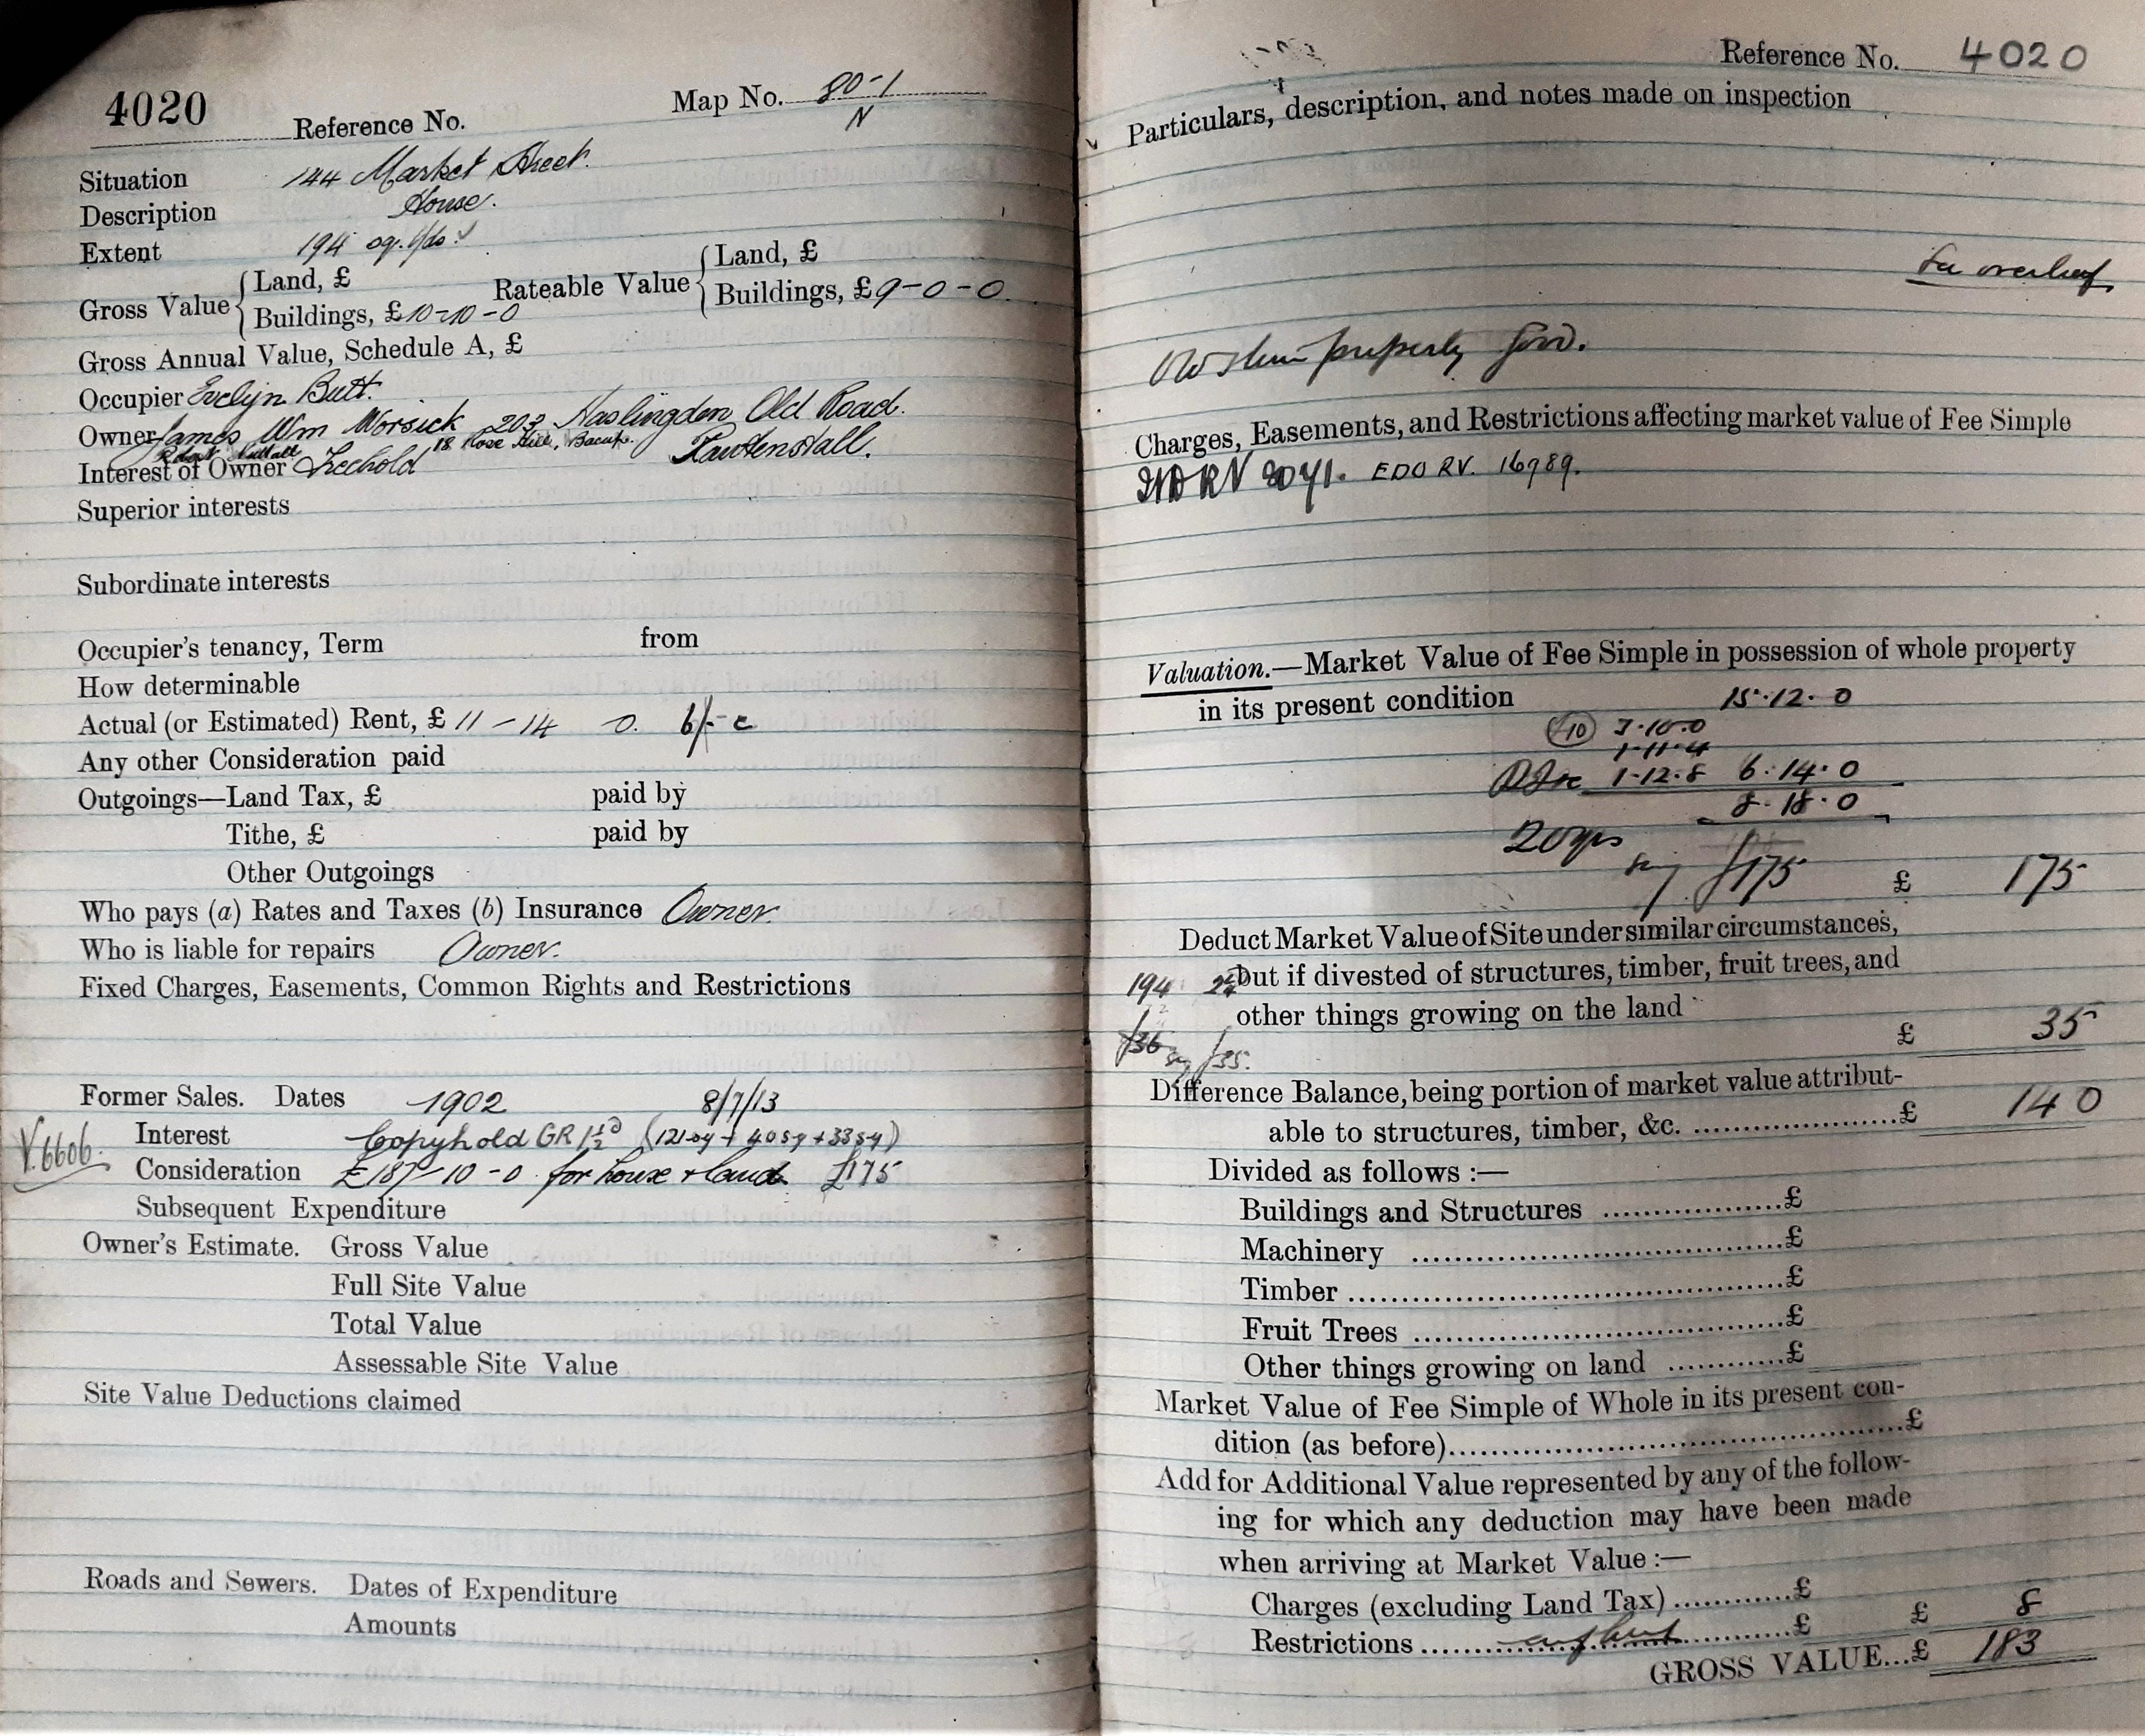 4020 Reference No. Map No. 80-1
N
Situation 144 Market Street.
Description House.
Extent 194 sq. yds.
Gross Value { Land, £
Buildings, £10-10-0
Rateable Value { Land, £
Buildings, £9-0-0.
Gross Annual Value, Schedule A, £
Occupier Evelyn Butt.
Owner James Wm Worsick 203 Haslingden Old Road.
Robert Nuttall 18 Rose Hill, Bacup. Rawtenstall.
Interest of Owner Freehold
Superior interests
Subordinate interests
Occupier's tenancy, Term from
How determinable
Actual (or Estimated) Rent, £ 11 - 14 0. 6/- c
Any other Consideration paid
Outgoings—Land Tax, £ paid by
Tithe, £ paid by
Other Outgoings
Who pays (a) Rates and Taxes (b) Insurance Owner.
Who is liable for repairs Owner.
Fixed Charges, Easements, Common Rights and Restrictions
Former Sales. Dates 1902 8/7/13
Interest Copyhold GR 1½d (121 sy + 40 sy + 33 sy)
V.6606.
Consideration £187-10-0 for house + land £175
Subsequent Expenditure
Owner's Estimate. Gross Value
Full Site Value
Total Value
Assessable Site Value
Site Value Deductions claimed
Roads and Sewers. Dates of Expenditure
Amounts
Reference No. 4020
Particulars, description, and notes made on inspection
See overleaf
Old property Good.
Charges, Easements, and Restrictions affecting market value of Fee Simple
EDO RV. 16989.
Valuation.—Market Value of Fee Simple in possession of whole property
in its present condition 15.12.0
10 3.10.0
1.11.4
1.12.8 6.14.0
8.18.0
20 yrs
say £175 £ 175
Deduct Market Value of Site under similar circumstances,
194 but if divested of structures, timber, fruit trees, and
other things growing on the land
£36 say £35. £ 35
Difference Balance, being portion of market value attribut-
able to structures, timber, &c. ....................£ 140
Divided as follows :—
Buildings and Structures ..................£
Machinery ......................................£
Timber ............................................£
Fruit Trees ......................................£
Other things growing on land ............£
Market Value of Fee Simple of Whole in its present con-
dition (as before)..............................................£
Add for Additional Value represented by any of the follow-
ing for which any deduction may have been made
when arriving at Market Value :—
Charges (excluding Land Tax) ............£
Restrictions ......................................£ £ 8
GROSS VALUE...£ 183